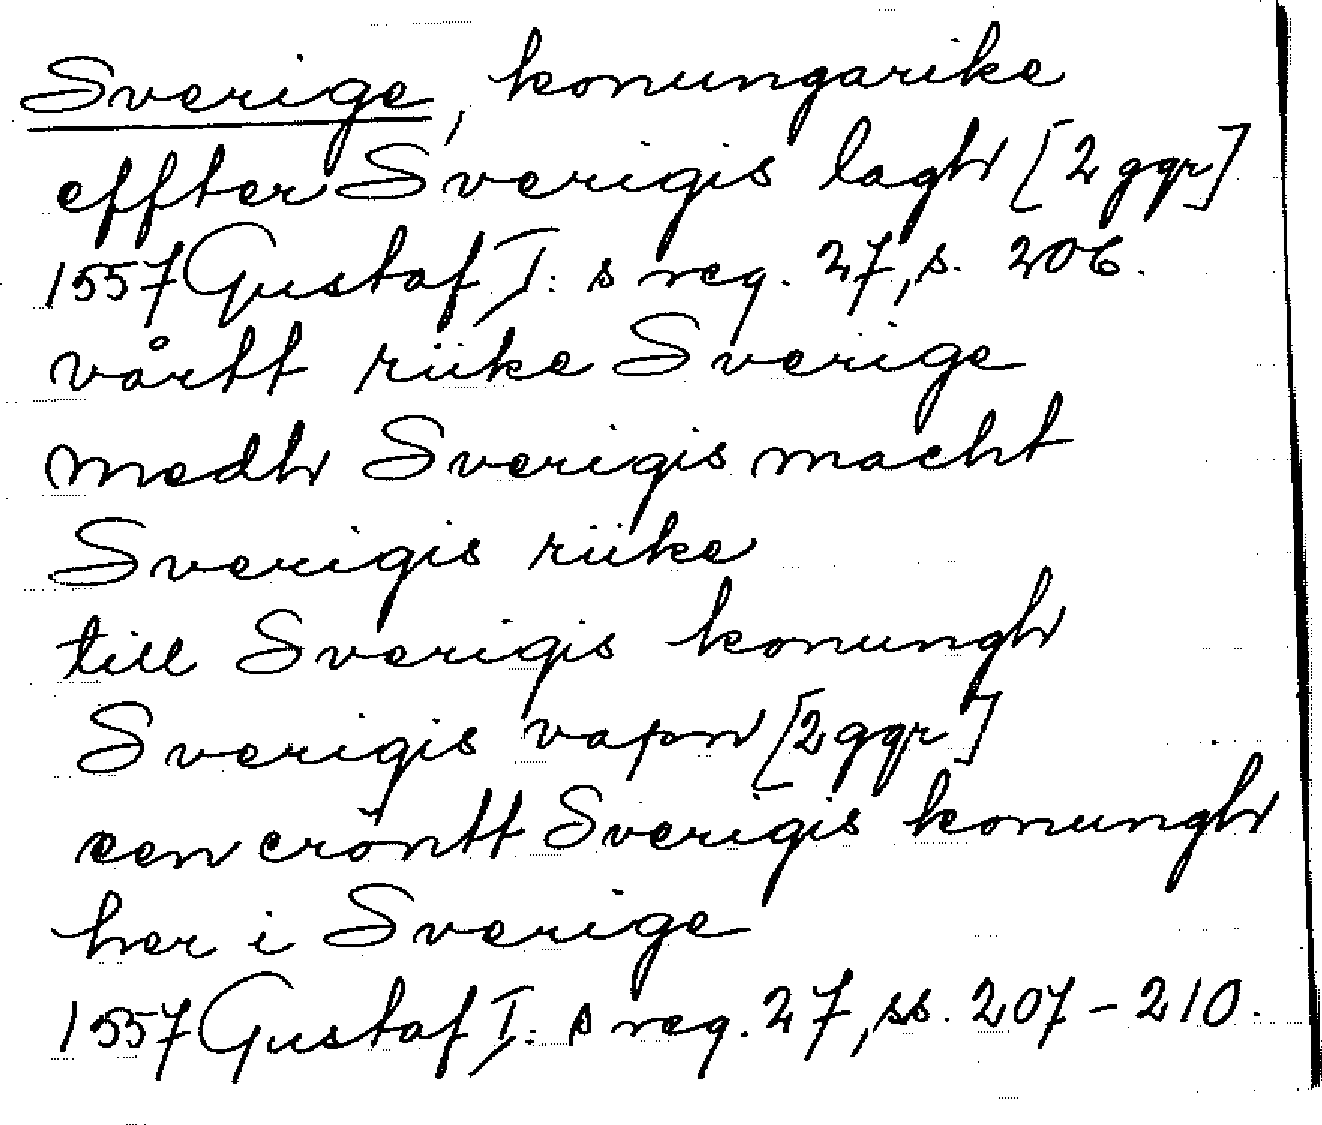 Sverige, konungarike
effter Sverigis lagh [2 ggr]
1557 Gustaf I:s reg. 27, s. 206.
vårtt riike Sverige
medh Sverigis macht
Sverigis riike
till Sverigis konungh
Sverigis vapn [2 ggr]
een cröntt Sverigis konungh
her i Sverige
1557 Gustaf I:s reg. 27, ss. 207-210.